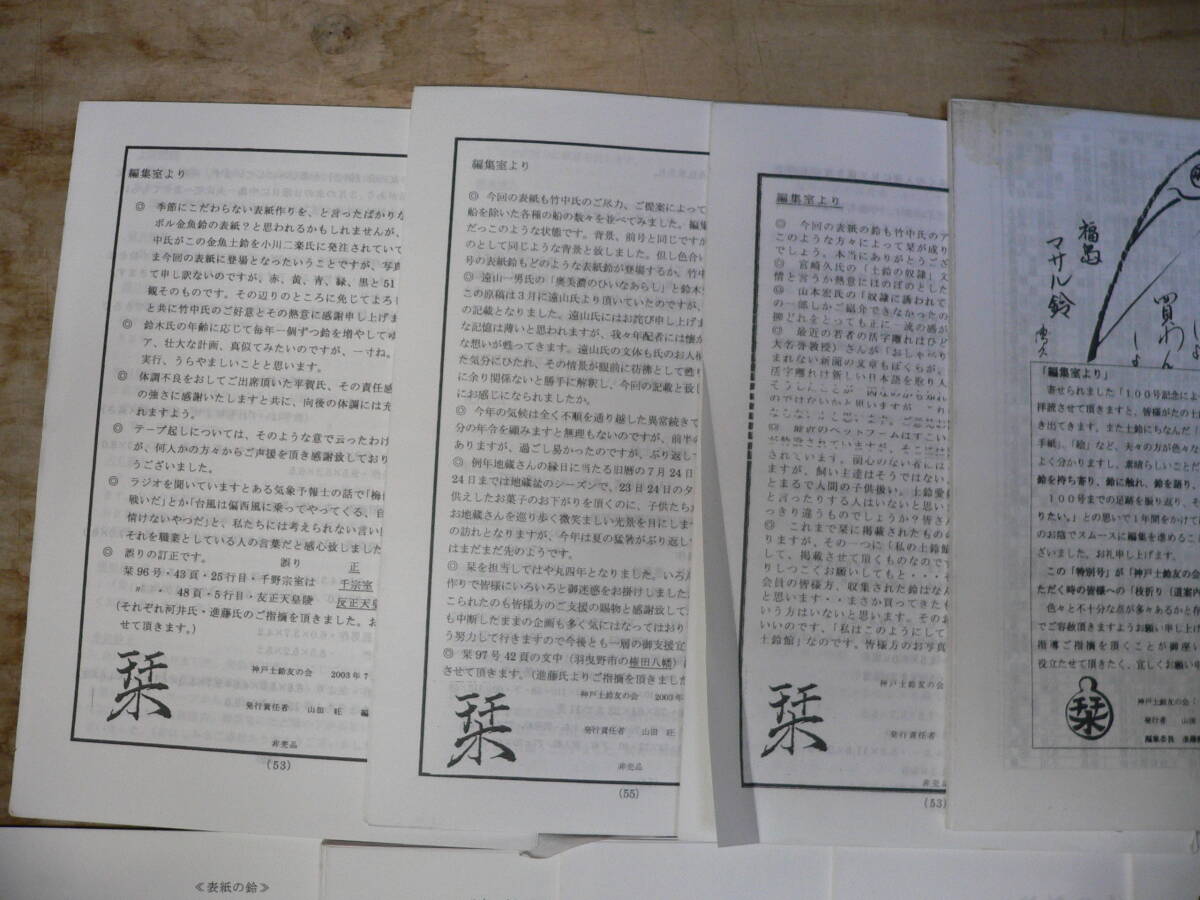 編集室より
◎ 季節にこだわらない表紙作りを、と言ったばかりな
ボル金魚鈴の表紙？と思われるかもしれませんが、
中氏がこの金魚土鈴を小川二楽氏に発注されていて
ま今回の表紙に登場となったいうことですが、写真
て申し訳ないのですが、赤、黄、青、緑、黒と51
観そのものです。その辺りのところに免じてよろし
と共に竹中氏のご好意とその熱意に感謝申し上げま
◎ 鈴木氏の年齢に応じて毎年一個ずつ鈴を増やしてゆ
ア、壮大な計画、真似てみたいのですが、一寸ね。
実行、うらやましいことと思います。
◎ 体調不良をおしてご出席頂いた平賀氏、その責任感
の強さに感謝いたしますと共に、向後の体調には充
れますよう。
◎ テープ起しについては、そのような意で云ったわけ
が、何人かの方々からご声援を頂き感謝致しており
うございました。
◎ ラジオを聞いていますとある気象予報士の話で「梅
戦いだ」とか「台風は偏西風に乗ってやってくる、自
情けないやつだ」と、私たちには考えられない言い
それを職業としている人の言葉だと感心致しました
◎ 誤りの訂正です。 誤り 正
栞96号・43頁・25行目・千野宗室は 千宗室
〃 ・ 48頁・5行目・友正天皇陵 反正天皇
(それぞれ河井氏・進藤氏のご指摘を頂きました。お
せて頂きます。)
栞
神戸土鈴友の会 2003年7
発行責任者 山田 旺 編
非売品
(53)
編集室より
◎ 今回の表紙も竹中氏のご尽力、ご提案によって
船を除いた各種の船の数々を並べてみました。編集
だっこのような状態です。背景、前号と同じですが
のとして同じような背景と致しました。但し色合い
号の表紙鈴もどのような表紙鈴が登場するか。竹中
◎ 遠山一男氏の「奥美濃のひいなあらし」と鈴木
この原稿は3月に遠山氏より頂いていたのですが、
の記載となりました。遠山氏にはお詫び申し上げま
な記憶は薄いと思われますが、我々年配者には懐か
な想いが甦ってきます。遠山氏の文体も氏のお人柄
た気分にひたれ、その情景が眼前に彷彿として甦り
に余り関係ないと勝手に解釈し、今回の記載と致し
にお感じになられましたか。
◎ 今年の気候は全く不順を通り越した異常続きで
分の年令を顧みますと無理もないのですが、前半の
ありますが、過ごし易かったのですが、ぶり返して
◎ 例年地蔵さんの縁日に当たる旧暦の7月24日
24日までは地蔵盆のシーズンで、23日24日の夕
供えしたお菓子のお下がりを頂くのに、子供たちが
お地蔵さんを巡り歩く微笑ましい光景を目にします
の訪れとなりますが、今年は夏の猛暑がぶり返して
はまだまだ先のようです。
◎ 栞を担当してはや丸四年となりました。いろん
作りで皆様にいろいろと御迷惑をお掛けしました。
こられたのも皆様方のご支援の賜物と感謝して
も中断したままの企画も多く気にはなってはおり
う努力して行きますので今後とも一層の御支援
◎ 栞97号42頁の文中(羽曳野市の権田八幡)
させて頂きます。(進藤氏よりご指摘を頂きました
栞
神戸土鈴友の会 2003年
発行責任者 山田 旺
非売品
(55)
編集室より
◎ 今回の表紙の鈴も竹中氏のア
このような方々によって栞が成り
でしょう。本当にありがとうござ
◎ 宮崎久氏の「土鈴の奴隷」文
情と言うか熱意にはほのぼのとした
◎ 山本宏氏の「奴隷に誘われて
の一部しかご紹介できなかったの
柳どれをとっても正に一流の感が
◎ 最近の若者の活字離れはひど
大名誉教授)さんが「おしゃべり
まれない新聞の文章もぼくらが、
活字離れけ新しい日本語を取り入
されています。関心のない者には
ますが、飼い主達はそうではない、
とまるで人間の子供扱い。土鈴愛
と言ったりする人はいないと思い
っきり違うものでしょうか？皆さ
◎ これまで栞に掲載されたものの
りますが、その一つに「私の土鈴
して、掲載させて頂くものなのです
りしつこくお願いしても・・・そ
会員の皆様方、収集された鈴はなん
と思います・・まさか買ってきたも
いう方はいないと思います。そのお
いいのです、「私はこのようにして
土鈴館」なのです。皆様方のお写真
栞
神戸土鈴友の会
発行責任者
非売品
(53)
マサル鈴
買わん
「編集室より」
寄せられました「100号記念によ
拝読させて頂きますと、皆様がたの士
き出てきます。また土鈴にちなんだ「
手紙」、「絵」など、夫々の方が色々な
よく分かりますし、素晴らしいことだ
鈴を持ち寄り、鈴に触れ、鈴を語り、
100号までの足跡を振り返り、そ
りたい。」との思いで1年間をかけて
のお陰でスムースに編集を進めるこ
ざいました。お礼申し上げます。
この「特別号」が「神戸土鈴友の会
ただく時の皆様への「枝折り(道案内
色々と不十分な点が多々あるかと存
でご容赦頂きますようお願い申し上げ
指導ご指摘を頂くことが御座い
役立たせて頂きたく、宜しくお願い申
栞
神戸土鈴友の会
発行者 山田
編集委員 進藤
≪表紙の鈴≫